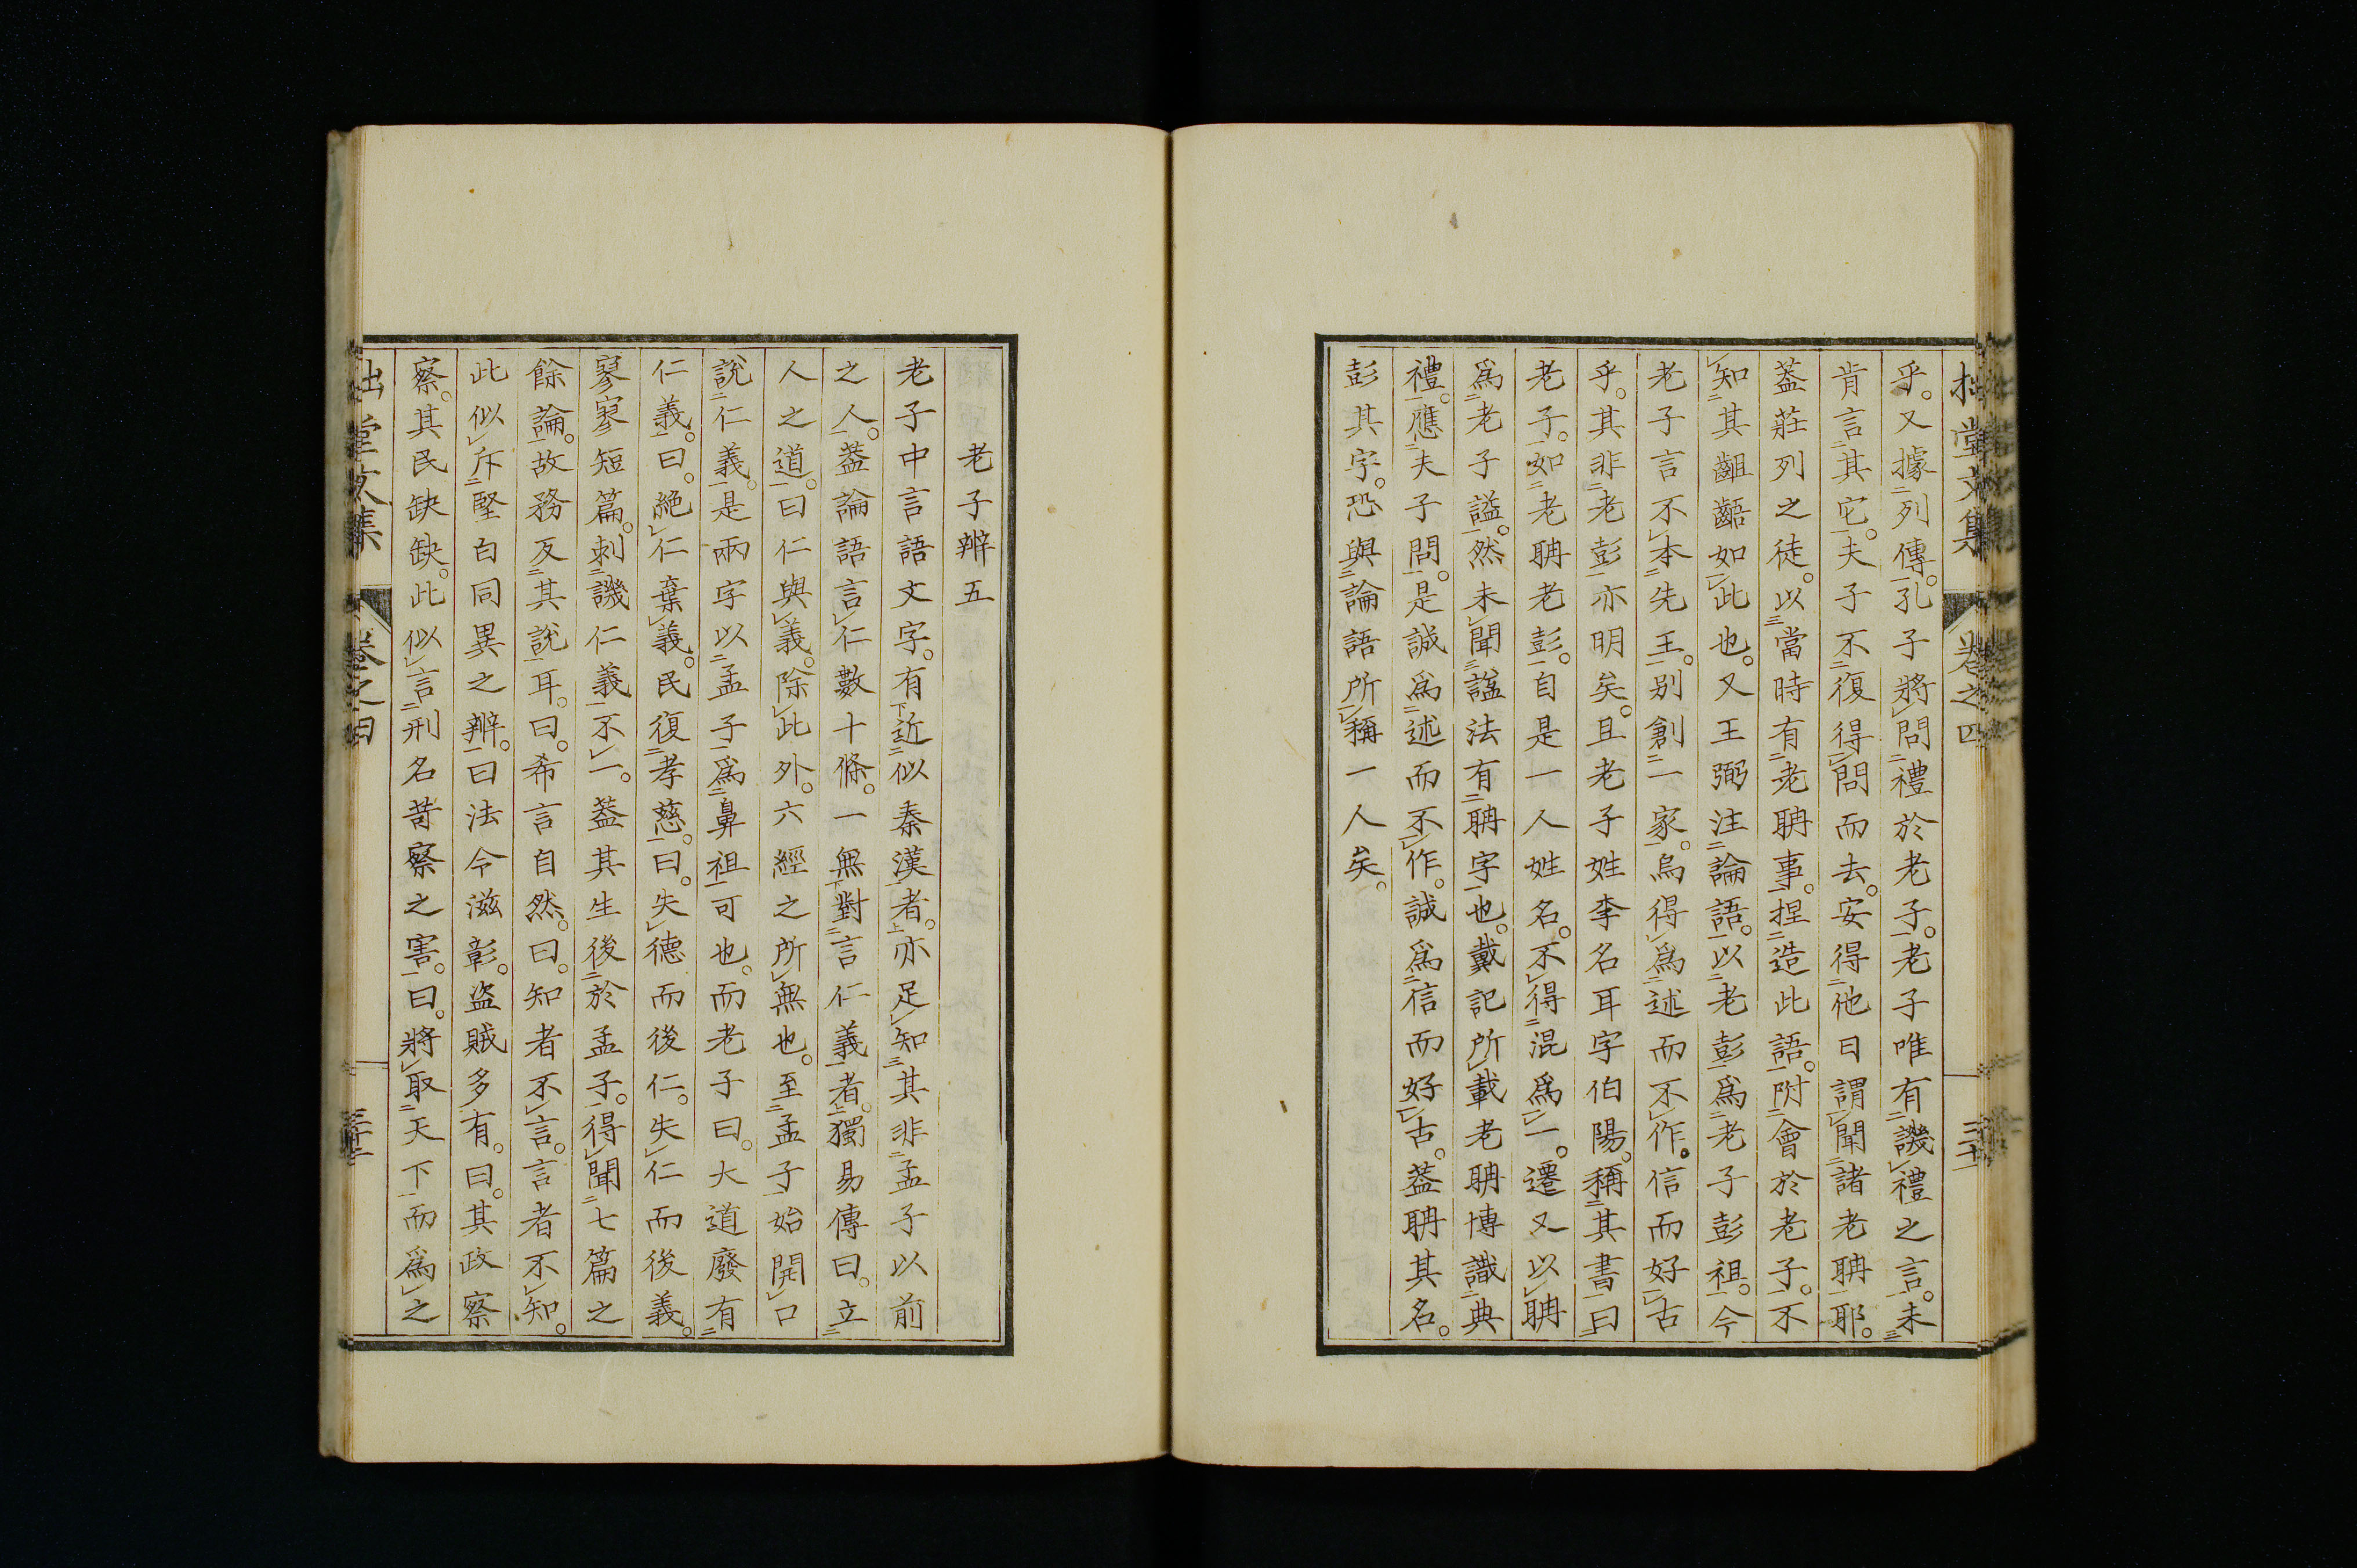 拙堂文集 卷之四
乎。又據列傳。孔子將問禮於老子。老子唯有譏禮之言。未
肯言其它。夫子不復得問而去。安得他日謂聞諸老聃耶。
葢莊列之徒。以當時有老聃事。揑造此語。附會於老子。不
知其齟齬如此也。又王弼注論語。以老彭爲老子彭祖。今
老子言不本先王。別創一家。烏得爲述而不作。信而好古
乎。其非老彭亦明矣。且老子姓李名耳字伯陽。稱其書曰
老子。如老聃老彭。自是一人姓名。不得混爲一。遷又以聃
爲老子謚。然未聞諡法有聃字也。戴記所載老聃博識典
禮。應夫子問。是誠爲述而不作。誠爲信而好古。葢聃其名。
彭其字。恐與論語所稱一人矣。
老子辨五
老子中言語文字。有近似秦漢者。亦足知其非孟子以前
之人。葢論語言仁數十條。一無對言仁義者。獨易傳曰。立
人之道。曰仁與義。除此外。六經之所無也。至孟子始開口
說仁義。是兩字以孟子爲鼻祖可也。而老子曰。大道廢有
仁義。曰。絕仁棄義。民復孝慈。曰。失德而後仁。失仁而後義。
寥寥短篇。刺譏仁義不一。葢其生後於孟子。得聞七篇之
餘論。故務反其說耳。曰。希言自然。曰。知者不言。言者不知。
此似斥堅白同異之辨。曰法令滋彰。盜賊多有。曰。其政察
察。其民缺缺。此似言刑名苛察之害。曰。將取天下而爲之
拙堂文集 卷之四